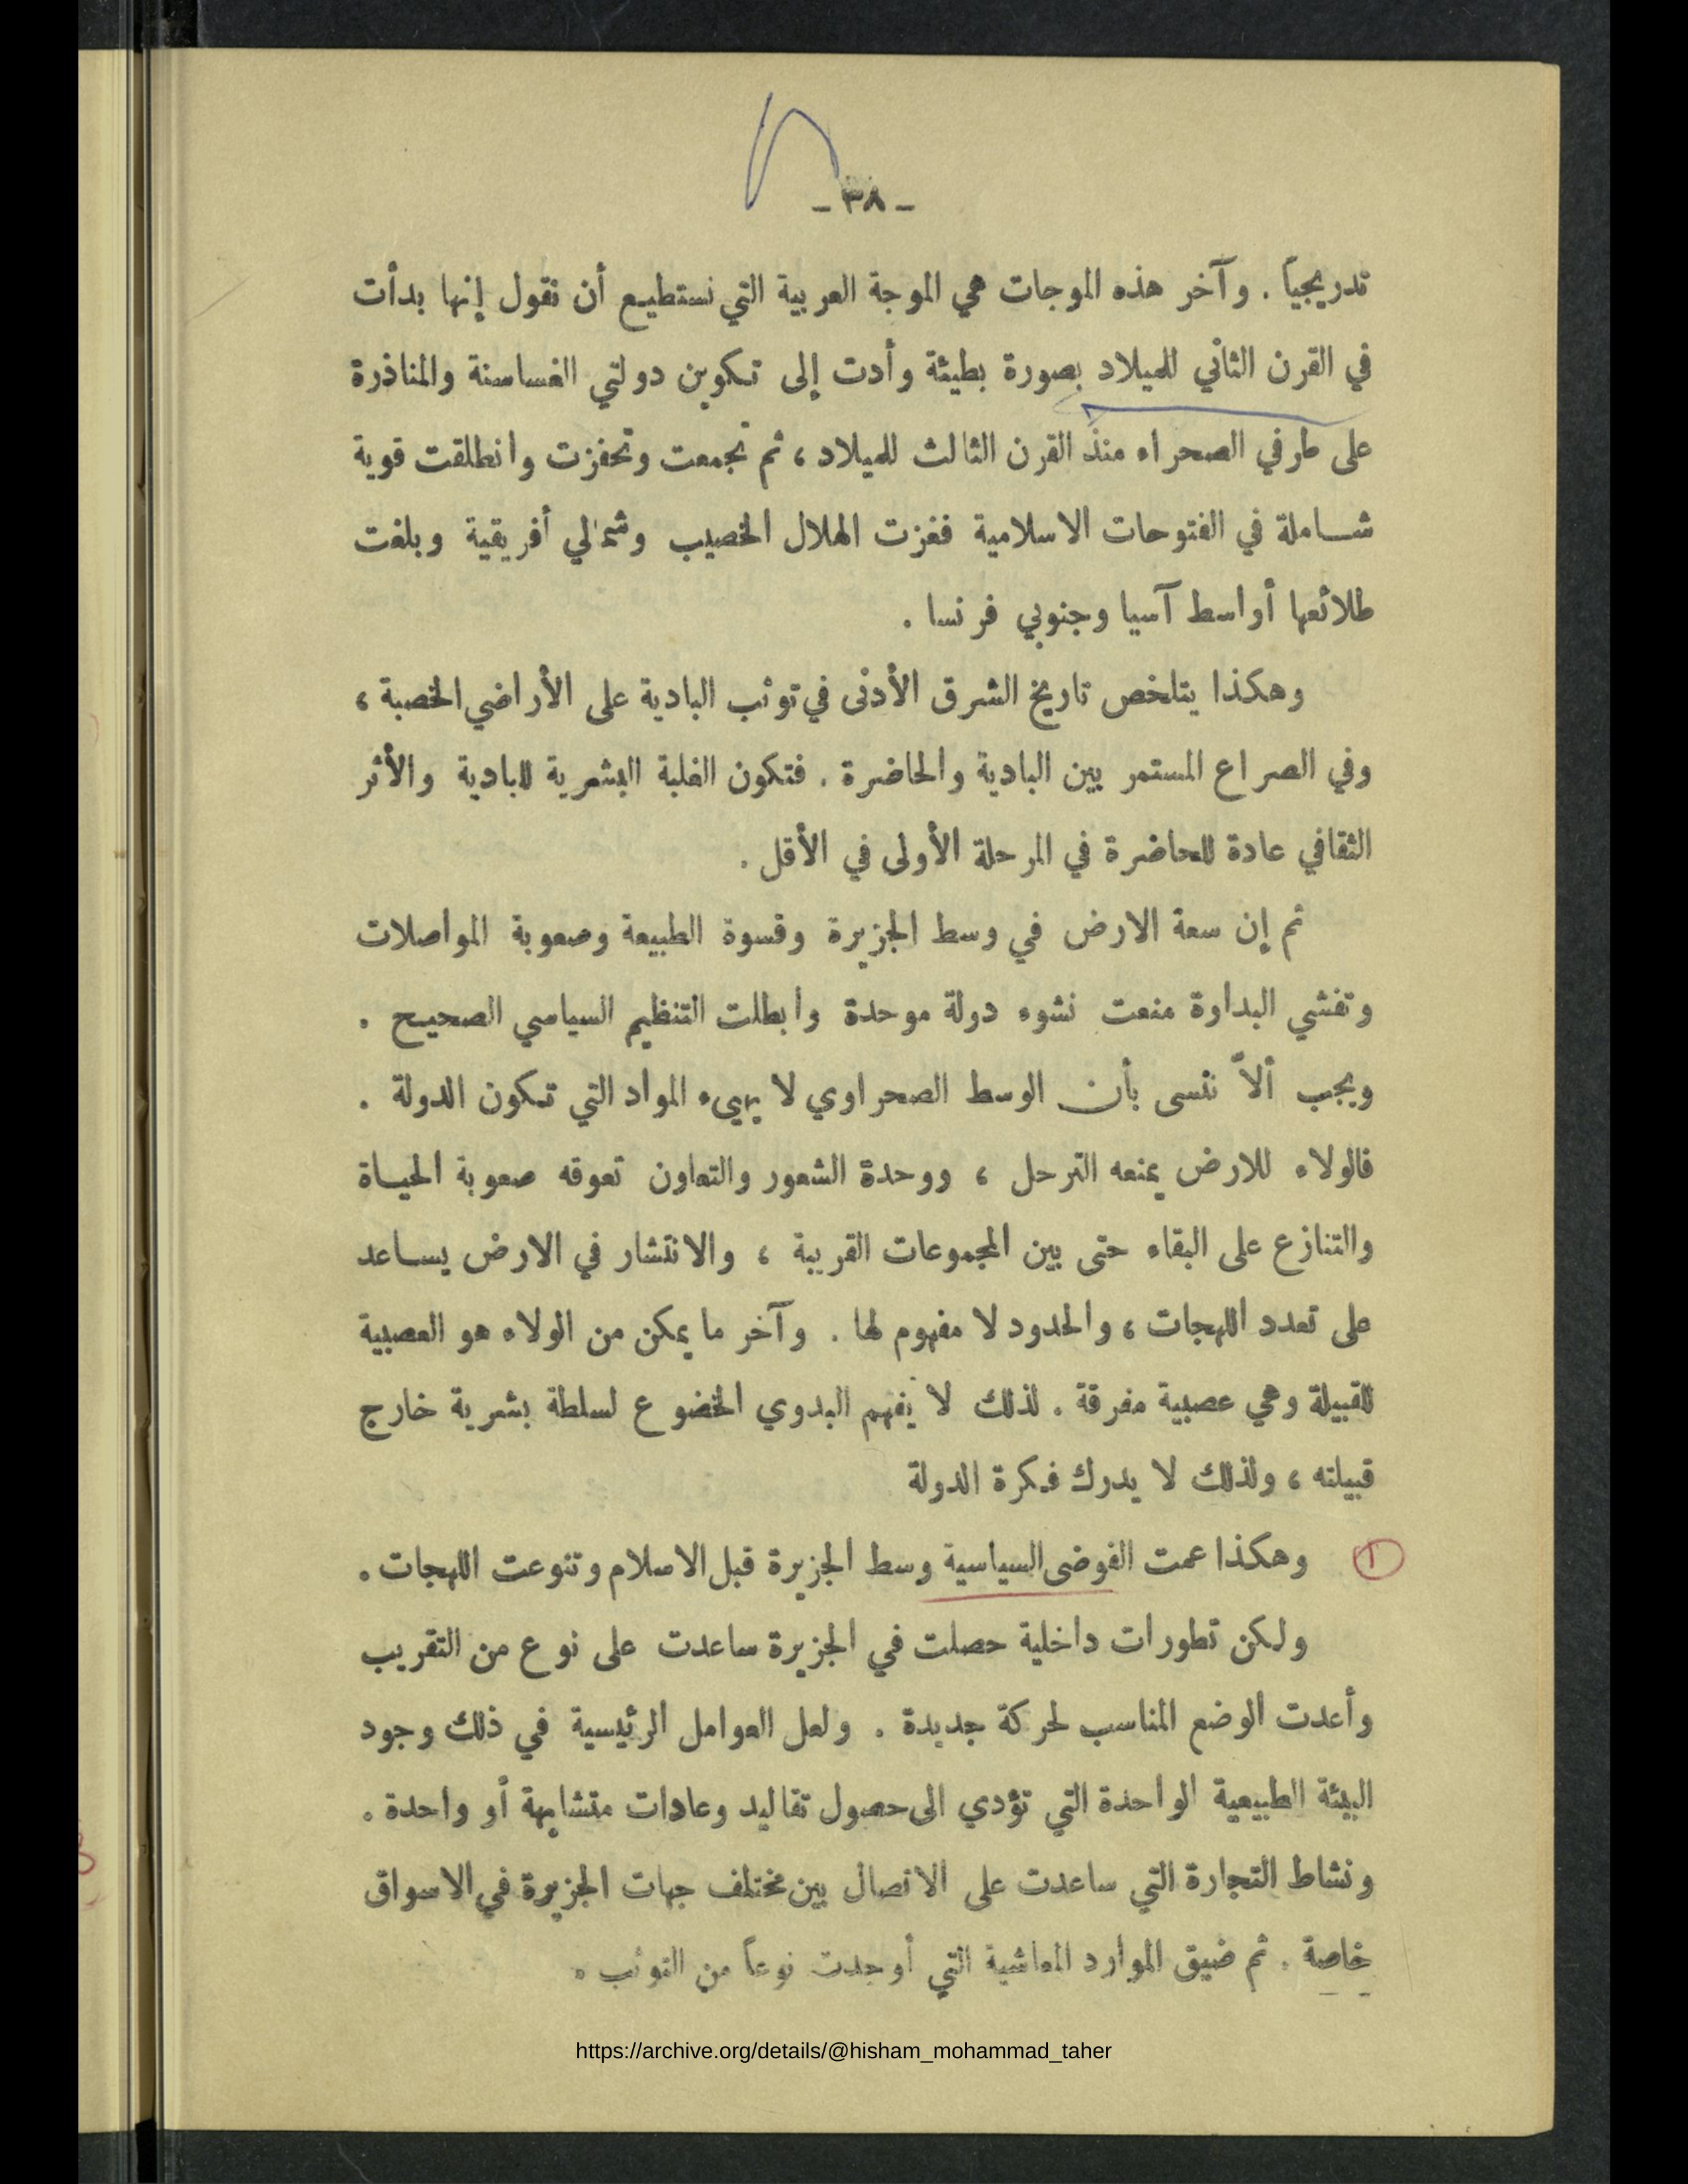 - ٣٨ -
تدريجياً . وآخر هذه الموجات هي الموجة العربية التي نستطيع أن نقول إنها بدأت
في القرن الثاني للميلاد بصورة بطيئة وأدت إلى تكوين دولتي الغساسنة والمناذرة
على طرفي الصحراء منذ القرن الثالث للميلاد ، ثم تجمعت وتحفزت وانطلقت قوية
شاملة في الفتوحات الاسلامية فغزت الهلال الخصيب وشمالي أفريقية وبلغت
طلائعها أواسط آسيا وجنوبي فرنسا .
وهكذا يتلخص تاريخ الشرق الأدنى في توثب البادية على الأراضي الخصبة ،
وفي الصراع المستمر بين البادية والحاضرة . فتكون الغلبة البشرية للبادية والأثر
الثقافي عادة للحاضرة في المرحلة الأولى في الأقل .
ثم إن سعة الارض في وسط الجزيرة وقسوة الطبيعة وصعوبة المواصلات
وتفشي البداوة منعت نشوء دولة موحدة وابطلت التنظيم السياسي الصحيح .
ويجب ألاّ ننسى بأن الوسط الصحراوي لا يهيء المواد التي تكون الدولة .
فالولاء للارض يمنعه الترحل ، ووحدة الشعور والتعاون تعوقه صعوبة الحياة
والتنازع على البقاء حتى بين المجموعات القريبة ، والانتشار في الارض يساعد
على تعدد اللهجات ، والحدود لا مفهوم لها . وآخر ما يمكن من الولاء هو العصبية
للقبيلة وهي عصبية مفرقة . لذلك لا يفهم البدوي الخضوع لسلطة بشرية خارج
قبيلته ، ولذلك لا يدرك فكرة الدولة
١ وهكذا عمت الفوضى السياسية وسط الجزيرة قبل الاسلام وتنوعت اللهجات .
ولكن تطورات داخلية حصلت في الجزيرة ساعدت على نوع من التقريب
وأعدت الوضع المناسب لحركة جديدة . ولعل العوامل الرئيسية في ذلك وجود
البيئة الطبيعية الواحدة التي تؤدي الى حصول تقاليد وعادات متشابهة أو واحدة .
ونشاط التجارة التي ساعدت على الاتصال بين مختلف جهات الجزيرة في الاسواق
خاصة . ثم ضيق الموارد المعاشية التي أوجدت نوعاً من التوثب .
https://archive.org/details/@hisham_mohammad_taher